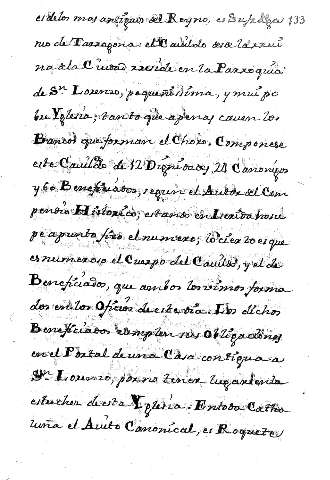 es de los mas antiguos del Reyno, es Sufraga 133
neo de Tarragona: el Cavildo desde la rrui
na de la Ciudad rreside en la Parroquia
de Sn. Lorenzo, pequeñissima, y mui po
bre Yglesia; tanto que apenas caven los
Bancos que forman el Choro. Componese
este Cavildo de 12 Dignidades, 24 Canonigos
y 60 Beneficiados, segun el Autor del Com
pendio Historico; estando en Lerida no su
pe apunto fixo el numero; lo cierto es que
es numeroso el Cuerpo del Cavildo, y el de
Beneficiados, que ambos los vimos forma
dos en los Oficios de este dia. Los dichos
Beneficiados cumplen sus Obligaciones
en el Portal de una Casa contigua a
Sn. Lorenzo, por no tener lugar en la
estrechez de esta Yglesia. En toda Catha
luña el Avito Canonical, es Roquete